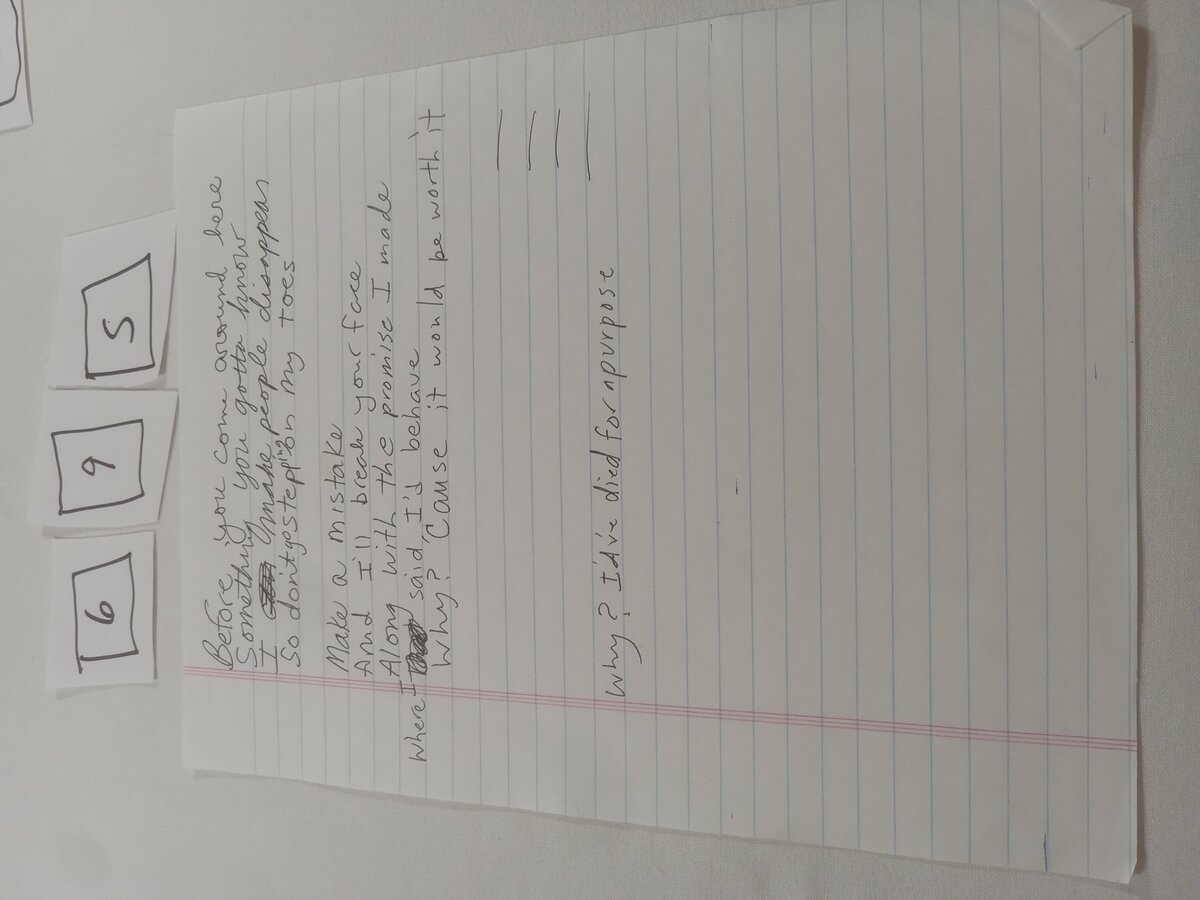 6
9
5
Before you come around here
Something you gotta know
I make people disappear
So don't go steppin' on my toes
Make a mistake
And I'll break your face
Along with the promise I made
Where I said I'd behave
Why? 'Cause it would be worth it
Why? I'd've died for a purpose